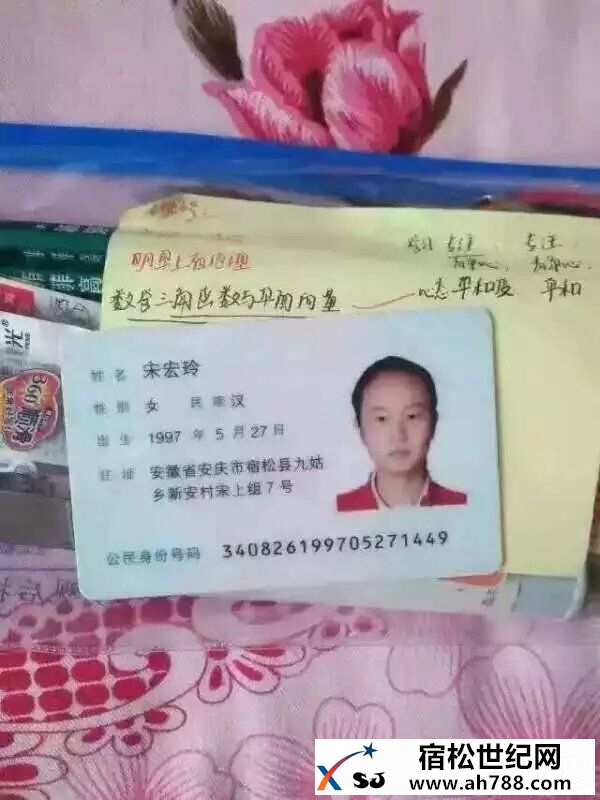 明早上有伦理
学习 专注 专注
有耐心, 有耐心,
数学三角函数与平面向量 心态平和度 平和
姓名 宋宏玲
性别 女 民族 汉
出生 1997 年 5 月 27 日
住址 安徽省安庆市宿松县九姑
乡新安村宋上组7号
公民身份号码 340826199705271449
光
360°
宿松世纪网
XSJ www.ah788.com